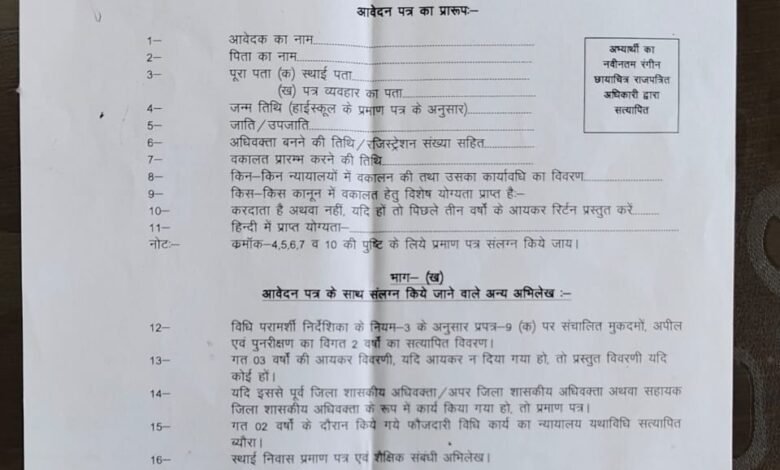 आवेदन पत्र का प्रारूपः–
1– आवेदक का नाम
2– पिता का नाम
3– पूरा पता (क) स्थाई पता
(ख) पत्र व्यवहार का पता
4– जन्म तिथि (हाईस्कूल के प्रमाण पत्र के अनुसार)
5– जाति/उपजाति
6– अधिवक्ता बनने की तिथि/रजिस्ट्रेशन संख्या सहित
7– वकालत प्रारम्भ करने की तिथि
8– किन–किन न्यायालयों में वकालन की तथा उसका कार्यावधि का विवरण
9– किस–किस कानून में वकालत हेतु विशेष योग्यता प्राप्त हैः–
10– करदाता है अथवा नहीं, यदि हाँ तो पिछले तीन वर्षो के आयकर रिर्टन प्रस्तुत करें
11– हिन्दी में प्राप्त योग्यता–
नोटः– कमॉक–4,5,6,7 व 10 की पुष्टि के लिये प्रमाण पत्र संलग्न किये जाय।
अभ्यार्थी का
नवीनतम रंगीन
छायाचित्र राजपत्रित
अधिकारी द्वारा
सत्यापित
भाग– (ख)
आवेदन पत्र के साथ संलग्न किये जाने वाले अन्य अभिलेख :–
12– विधि परामर्शी निर्देशिका के नियम–3 के अनुसार प्रपत्र–9 (क) पर संचालित मुकदमों, अपील
एवं पुनरीक्षण का विगत 2 वर्षो का सत्यापित विवरण।
13– गत 03 वर्षो की आयकर विवरणी, यदि आयकर न दिया गया हो, तो प्रस्तुत विवरणी यदि
कोई हों।
14– यदि इससे पूर्व जिला शासकीय अधिवक्ता/अपर जिला शासकीय अधिवक्ता अथवा सहायक
जिला शासकीय अधिवक्ता के रूप में कार्य किया गया हो, तो प्रमाण पत्र।
15– गत 02 वर्षो के दौरान किये गये फौजदारी विधि कार्य का न्यायालय यथाविधि सत्यापित
ब्यौरा।
16– स्थाई निवास प्रमाण पत्र एवं शैक्षिक संबंधी अभिलेख।